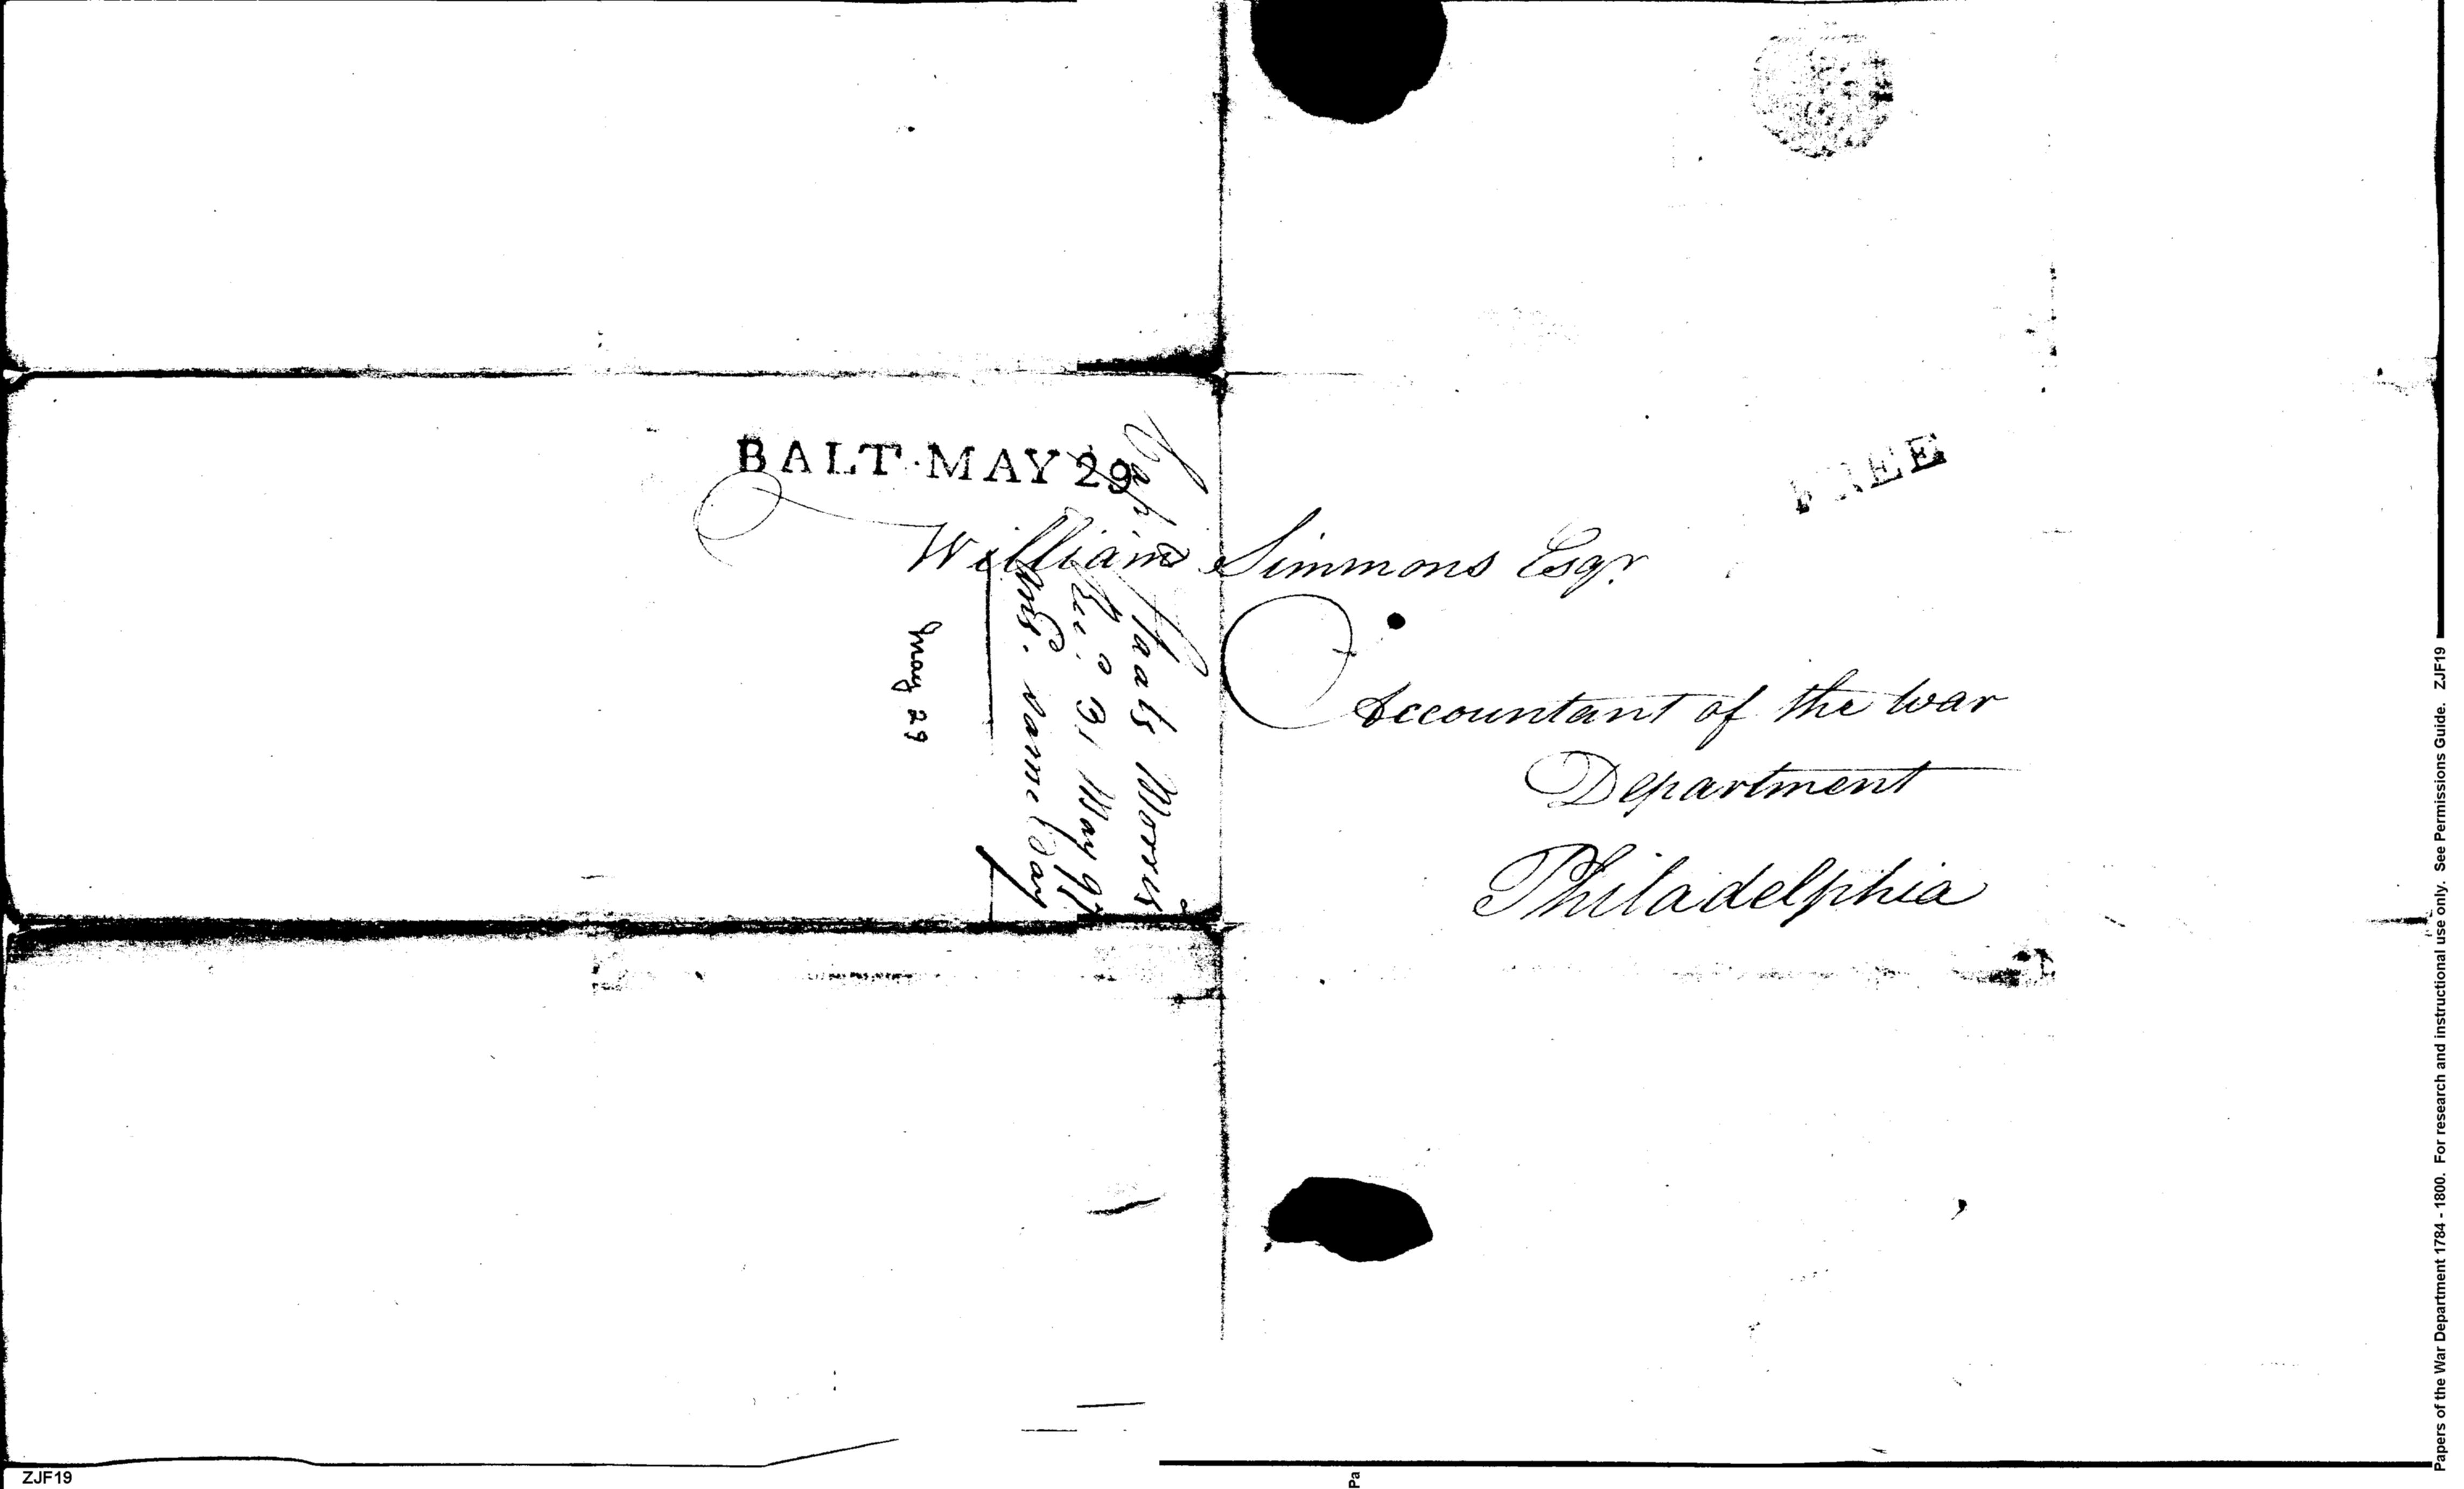 BALT. MAY 29
FREE
William Simmons Esqr.
Accountant of the War
Department
Philadelphia
Capt. Staats Morris
Rec.d 31 May 97
Ans. same day
May 29
ZJF19
Pa
Papers of the War Department 1784 - 1800. For research and instructional use only. See Permissions Guide. ZJF19